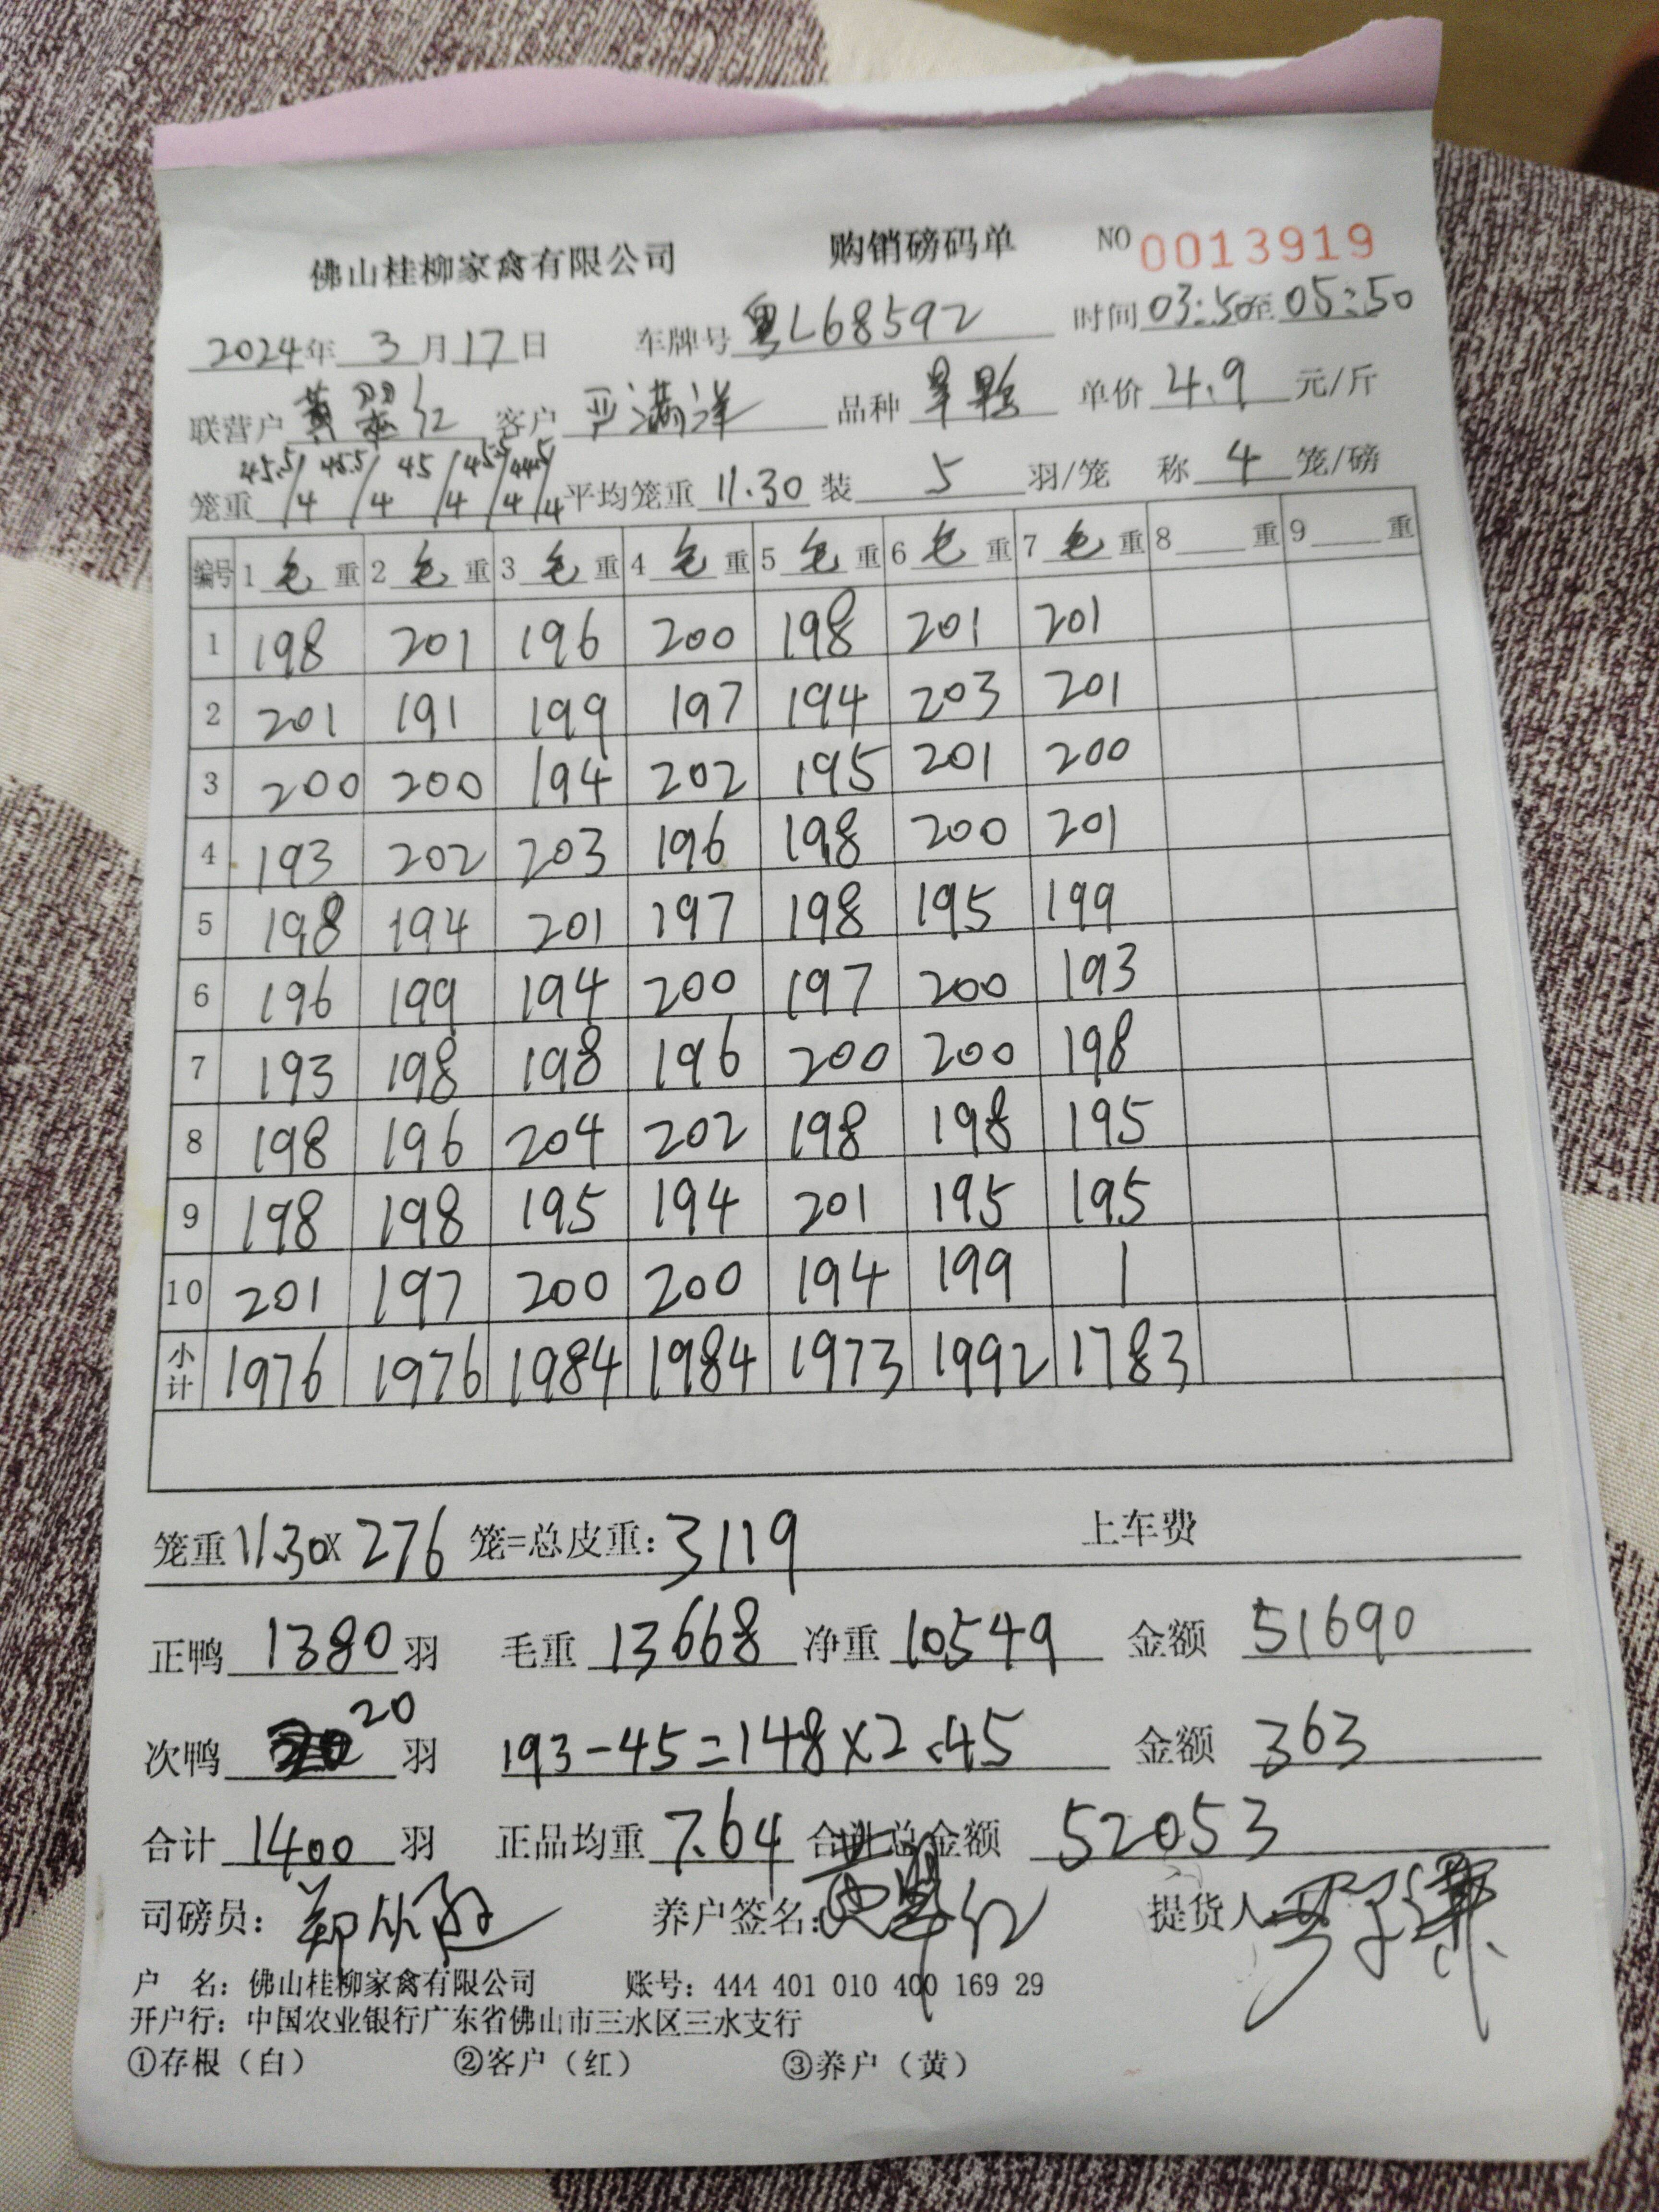 佛山桂柳家禽有限公司 购销磅码单 NO 0013919
2024年 3 月 17 日 车牌号 粤L68592 时间 03:50 至 05:50
联营户 黄翠红 客户 严满洋 品种 单价 4.9 元/斤
笼重 45.5/4 45.5/4 45/4 45.5/4 44.5/4 平均笼重 11.30 装 5 羽/笼 称 4 笼/磅
编号 1 毛 重 2 毛 重 3 毛 重 4 毛 重 5 毛 重 6 毛 重 7 毛 重 8 重 9 重
1 198 201 196 200 198 201 201
2 201 191 199 197 194 203 201
3 200 200 194 202 195 201 200
4 193 202 203 196 198 200 201
5 198 194 201 197 198 195 199
6 196 199 194 200 197 200 193
7 193 198 198 196 200 200 198
8 198 196 204 202 198 198 195
9 198 198 195 194 201 195 195
10 201 197 200 200 194 199 1
小计 1976 1976 1984 1984 1973 1992 1783
笼重 11.30 x 276 笼=总皮重: 3119 上车费
正鸭 1380 羽 毛重 13668 净重 10549 金额 51690
次鸭 20 羽 193-45=148x2.45 金额 363
合计 1400 羽 正品均重 7.64 合计总金额 52053
司磅员: 养户签名: 提货人
户 名: 佛山桂柳家禽有限公司 账号: 444 401 010 400 169 29
开户行: 中国农业银行广东省佛山市三水区三水支行
①存根(白) ②客户(红) ③养户(黄)